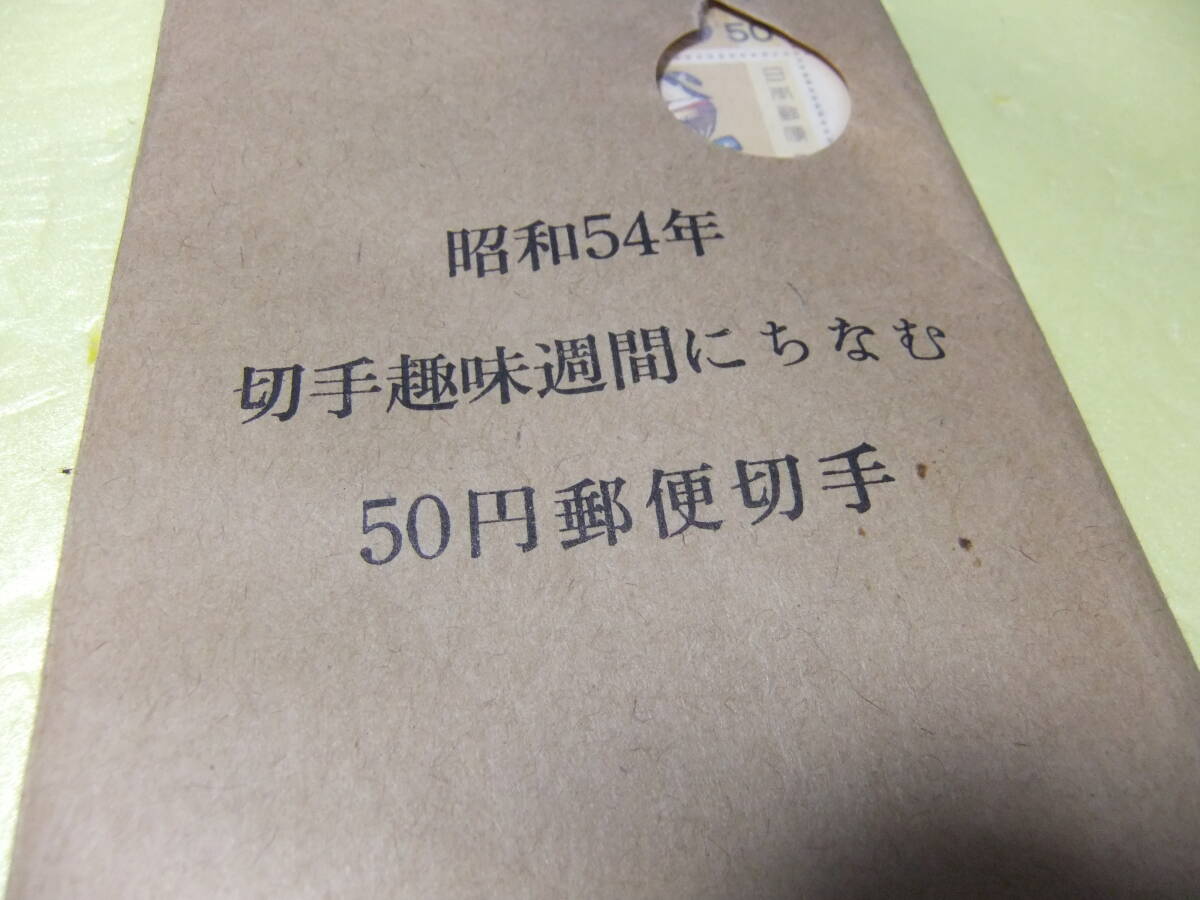 50
日本郵便
昭和54年
切手趣味週間にちなむ
50円郵便切手